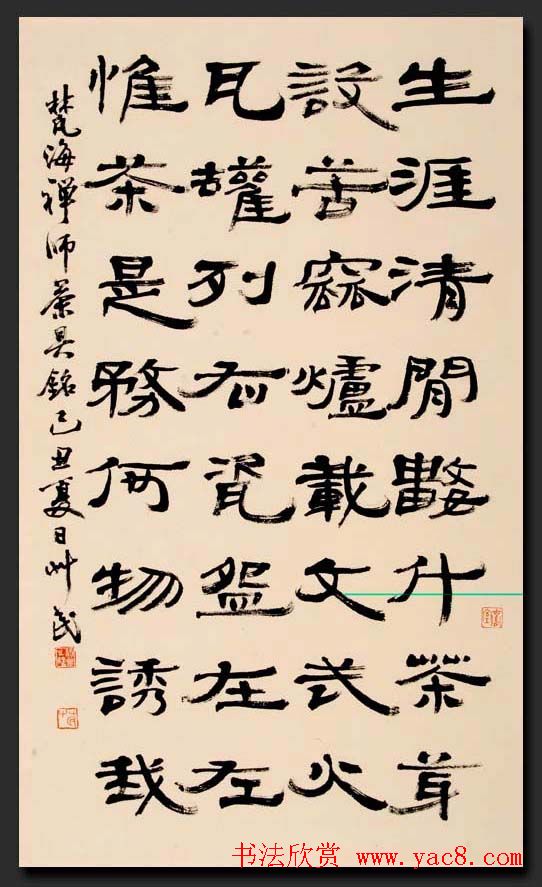 生涯清閒數什茶茸
設苦窳爐載文武火
瓦罐列右瓷盌在左
惟茶是務何物誘我
梵海禅师茶具銘己丑夏日艸民
书法欣赏 www.yac8.com